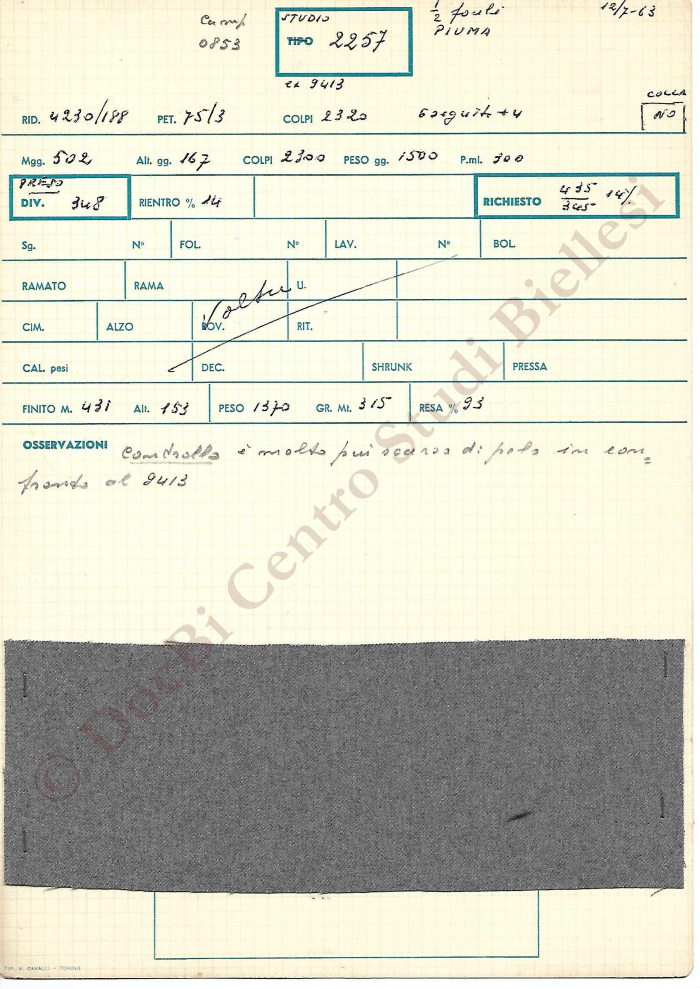 Camp 0853
STUDIO
TIPO 2257
ex 9413
1/2 fouli PIUMA
12/7-63
RID. 4230/188 PET. 75/3 COLPI 2320 Eseguito +4
COLLA
NO
Mgg. 502 Alt. gg. 167 COLPI 2300 PESO gg. 1500 P.ml. 300
PRESO
DIV. 348 RIENTRO % 14 RICHIESTO 435/345 14%
Sg. N° FOL. N° LAV. N° BOL.
RAMATO RAMA U.
Voltare
CIM. ALZO ROV. RIT.
CAL. pesi DEC. SHRUNK PRESSA
FINITO M. 431 Alt. 153 PESO 1370 GR. Mt. 315 RESA % 93
OSSERVAZIONI Controllo è molto più scarso di pelo in con=
fronto al 9413
© DocBi Centro Studi Biellesi
TIP. V. CAVALLI - TORINO